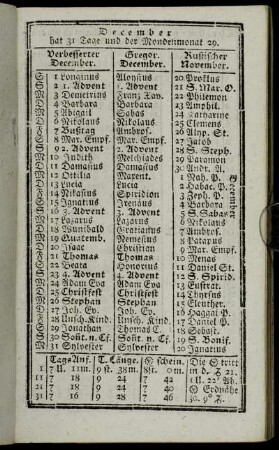 December
hat 31 Tage und der Mondenmonat 29.
Verbesserter December. Gregor. December. Russischer November.
S 1 Longinus Aloysius 20 Proklus
S 2 1. Advent 1. Advent 21 S. Mar. O.
M 3 Demetrius Franz Xav. 22 Philemon
D 4 Barbara Barbara 23 Amphil.
M 5 Abigail Sabas 24 Katharine
D 6 Nikolaus Nikolaus 25 Clemens
F 7 Bußtag Ambros. 26 Alyp. St.
S 8 Mar. Empf. Mar. Empf. 27 Jacob
S 9 2. Advent 2. Advent 28 S. Steph.
M 10 Judith Melchiades 29 Paramon
D 11 Damasius Damasius 30 Andr. A.
M 12 Ottilia Maxent. 1 Nah. P.
D 13 Lucia Lucia 2 Habac. P.
F 14 Nikasius Spiridion 3 Zeph. P.
S 15 Ignatius Irenäus 4 Barbara
S 16 3. Advent 3. Advent 5 S. Sabas
M 17 Lazarus Lazarus 6 Nikolaus
D 18 Wunibald Gratianus 7 Ambros.
M 19 Quatemb. Nemesius 8 Patapus
D 20 Isaac Christian 9 Mar. Empf.
F 21 Thomas Thomas 10 Menas
S 22 Beata Honorius 11 Daniel St.
S 23 4. Advent 4. Advent 12 S. Spirid.
M 24 Adam Eva Adam Eva 13 Eustrat.
D 25 Christfest Christfest 14 Thyrsus
M 26 Stephan Stephan 15 Eleuther.
D 27 Joh. Ev. Joh. Ev. 16 Haggai P.
F 28 Unsch. Kind. Unsch. Kind. 17 Daniel P.
S 29 Jonathan Thomas C. 18 Sebast.
S 30 Sont. n. Cf. Sont. n. Cf. 19 Bonifac.
M 31 Sylvester Sylvester 20 Ignatius
December
Tags Anf. T. Länge. ☉ schein. Die ☉ tritt
1 7 U. 11m. 9 st. 38m. 8st. 0m. in d. ♑ 21.
11 7 18 9 24 7 42 1 U. 22' Ab.
21 7 18 9 24 7 40 ☾ Erdnähe
31 7 16 9 28 7 46 30. 9°